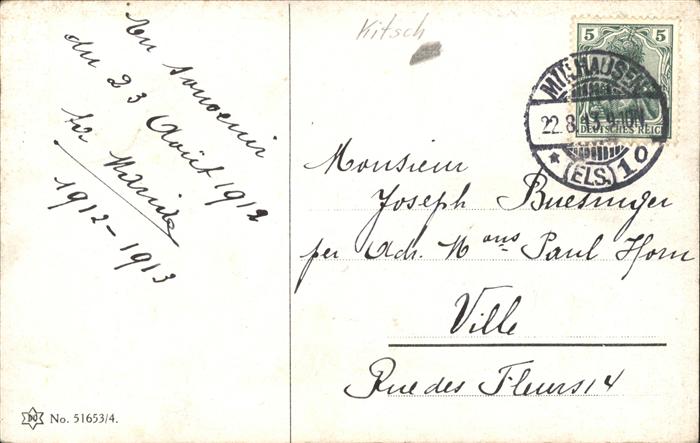 En souvenir
du 23 Août 1912
ta Maria
1912-1913
No. 51653/4.
Kitsch
5 5
DEUTSCHES REICH
MÜLHAUSEN
22.8.13.9-10N.
* (ELS.) 10
Monsieur
Joseph Buesinger
per Adr. Mons Paul Horn
Ville
Rue des Fleurs 14